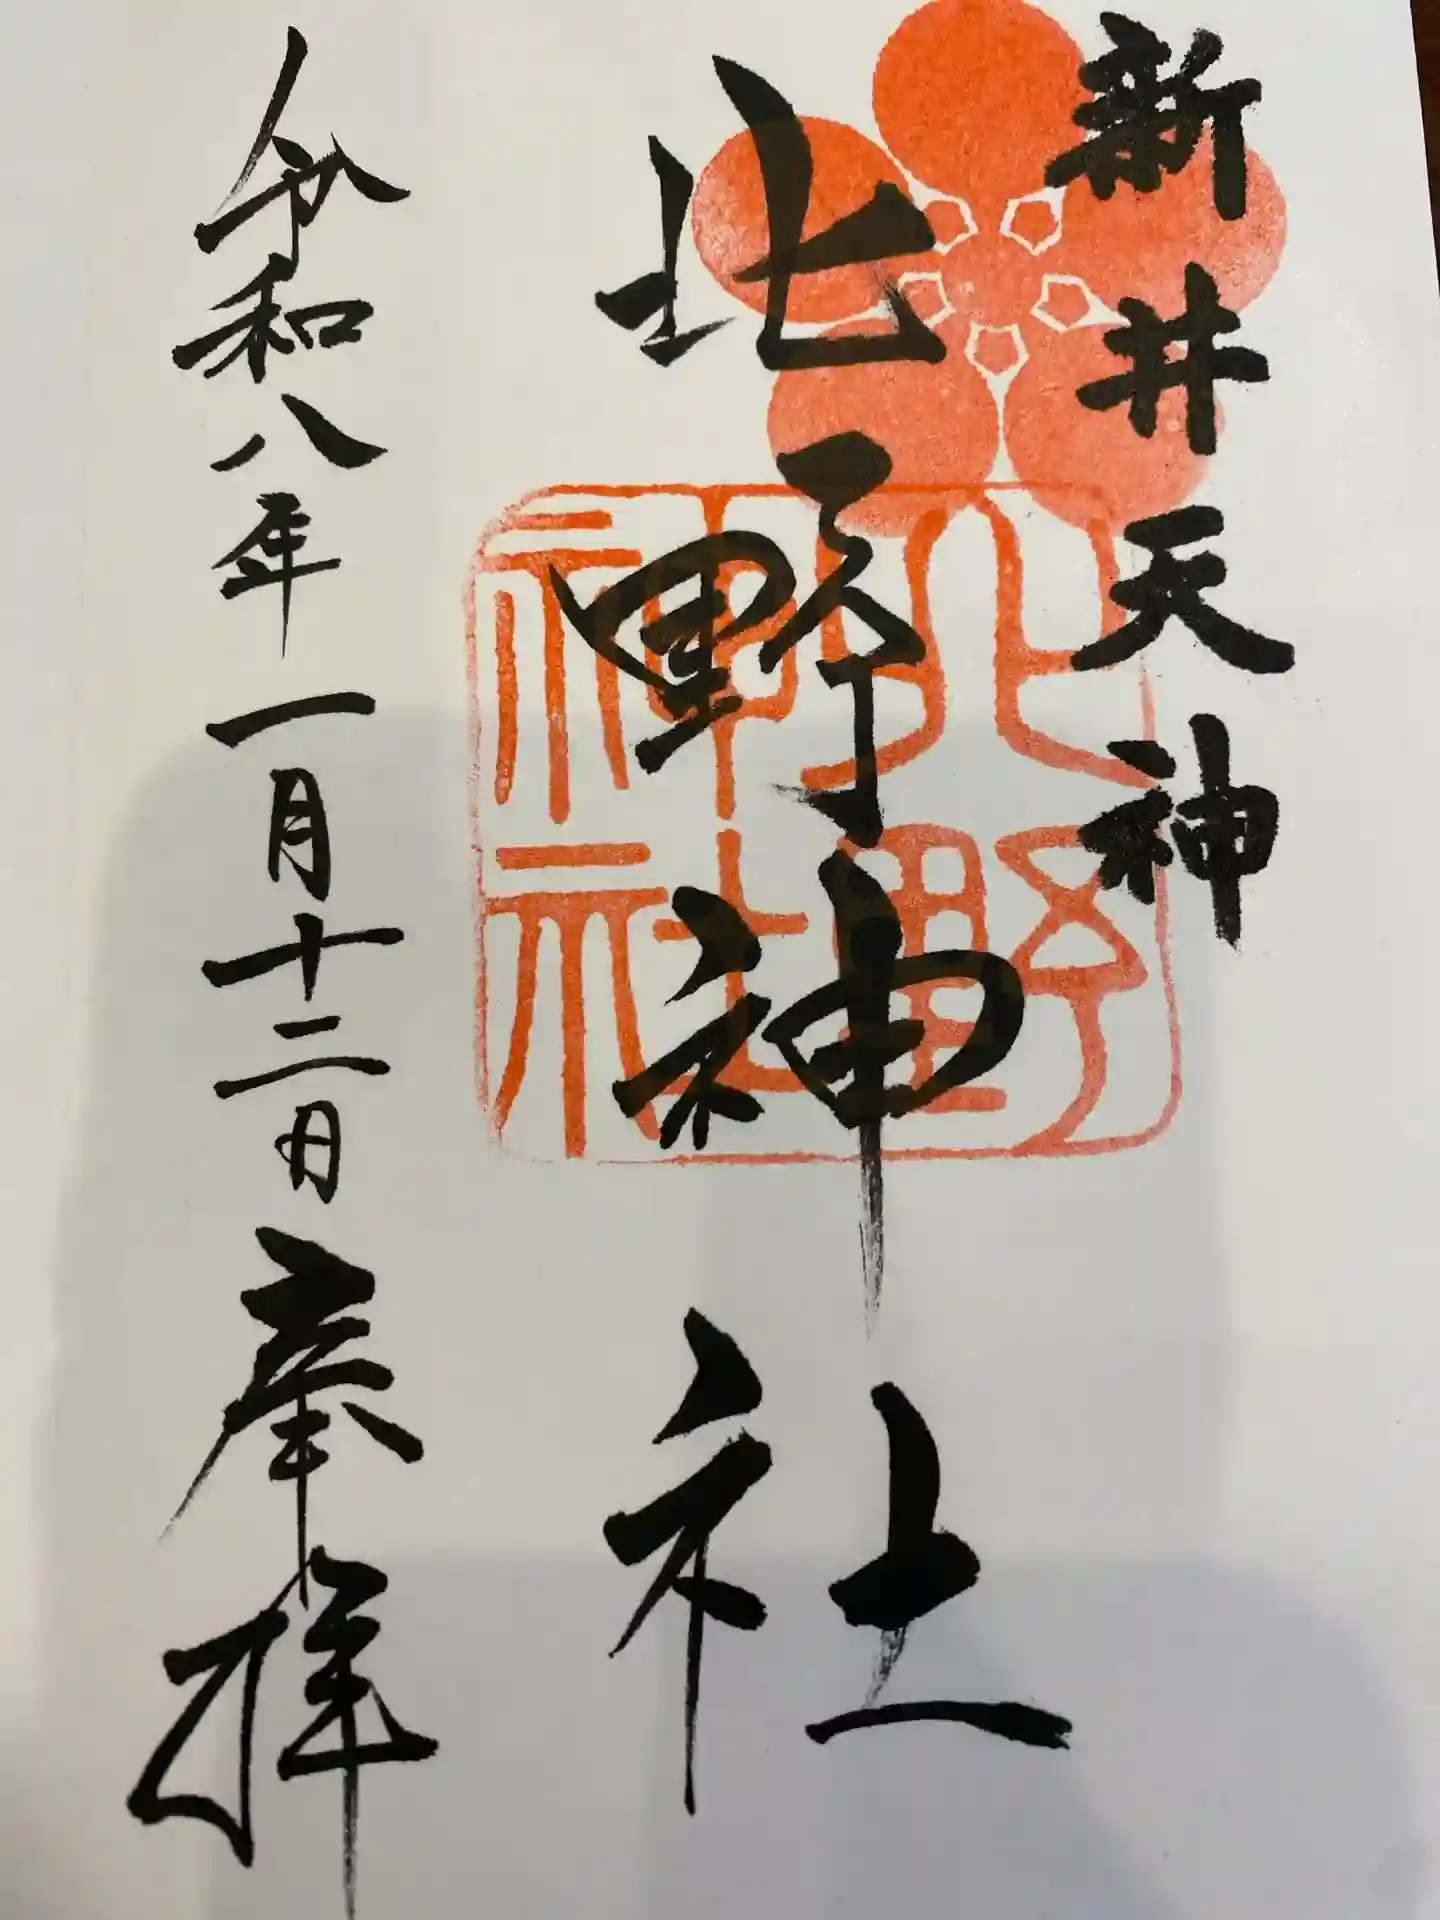 新井天神
北野神社
北野
神社
令和八年一月十二日奉拝